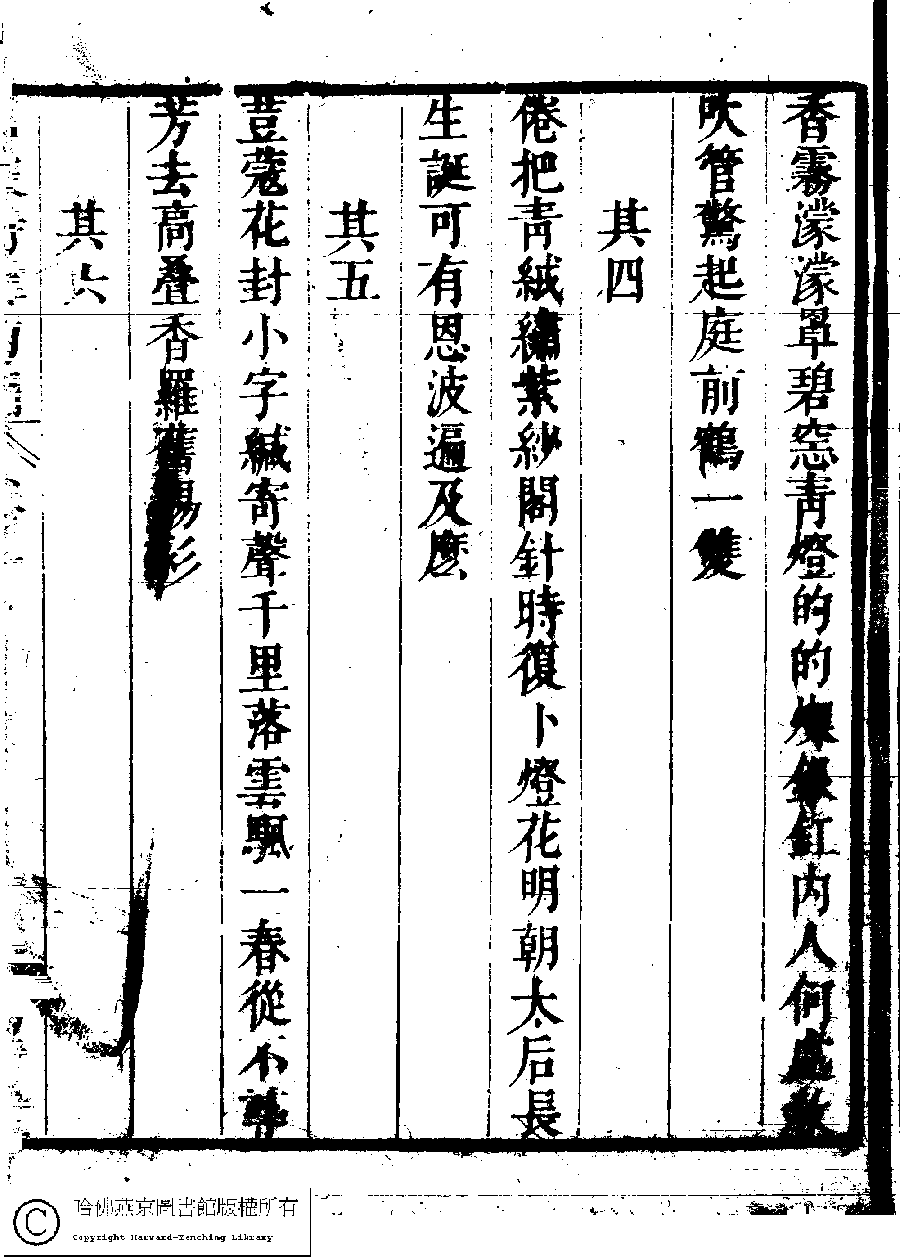 香霧濛濛罩碧窓青燈的的燦銀釭內人何處教
吹管驚起庭前鶴一雙
其四
倦把青絨繡紫紗閣針時復卜燈花明朝太后長
生誕可有恩波遍及麽
其五
荳蔻花封小字緘寄聲千里落雲颿一春從不
芳去高疊香羅舊賜衫
其六
哈佛燕京圖書館版權所有
Copyright Harvard-Yenching Library